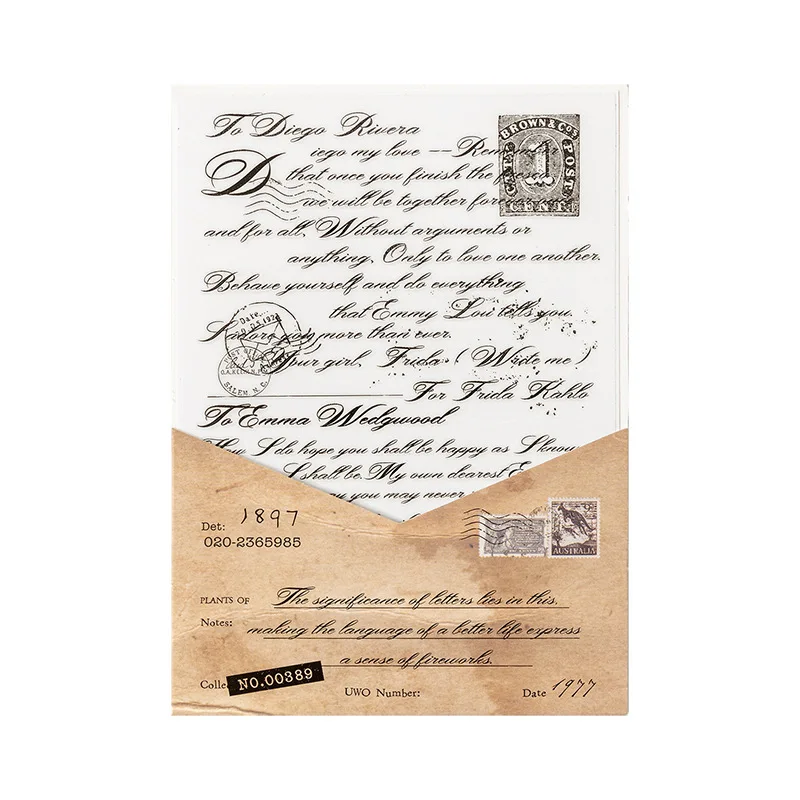 To Diego Rivera
Diego my love -- Remember
that once you finish the fresco
we will be together forever
and for all. Without arguments or
anything. Only to love one another.
Behave yourself and do everything
that Emmy Lou tells you.
I adore you more than ever.
Your girl, Frida (Write me)
For Frida Kahlo
To Emma Wedgwood
How I do hope you shall be happy as I know
I shall be. My own dearest E
you may never
BROWN & CO'S
CITY POST
1
CENT
Date.
1924
SALEM. N.C.
Det: 1897
020-2365985
AUSTRALIA
PLANTS OF
Notes:
The significance of letters lies in this.
making the language of a better life express
a sense of fireworks.
Colle
NO.00389
UWO Number:
Date 1977